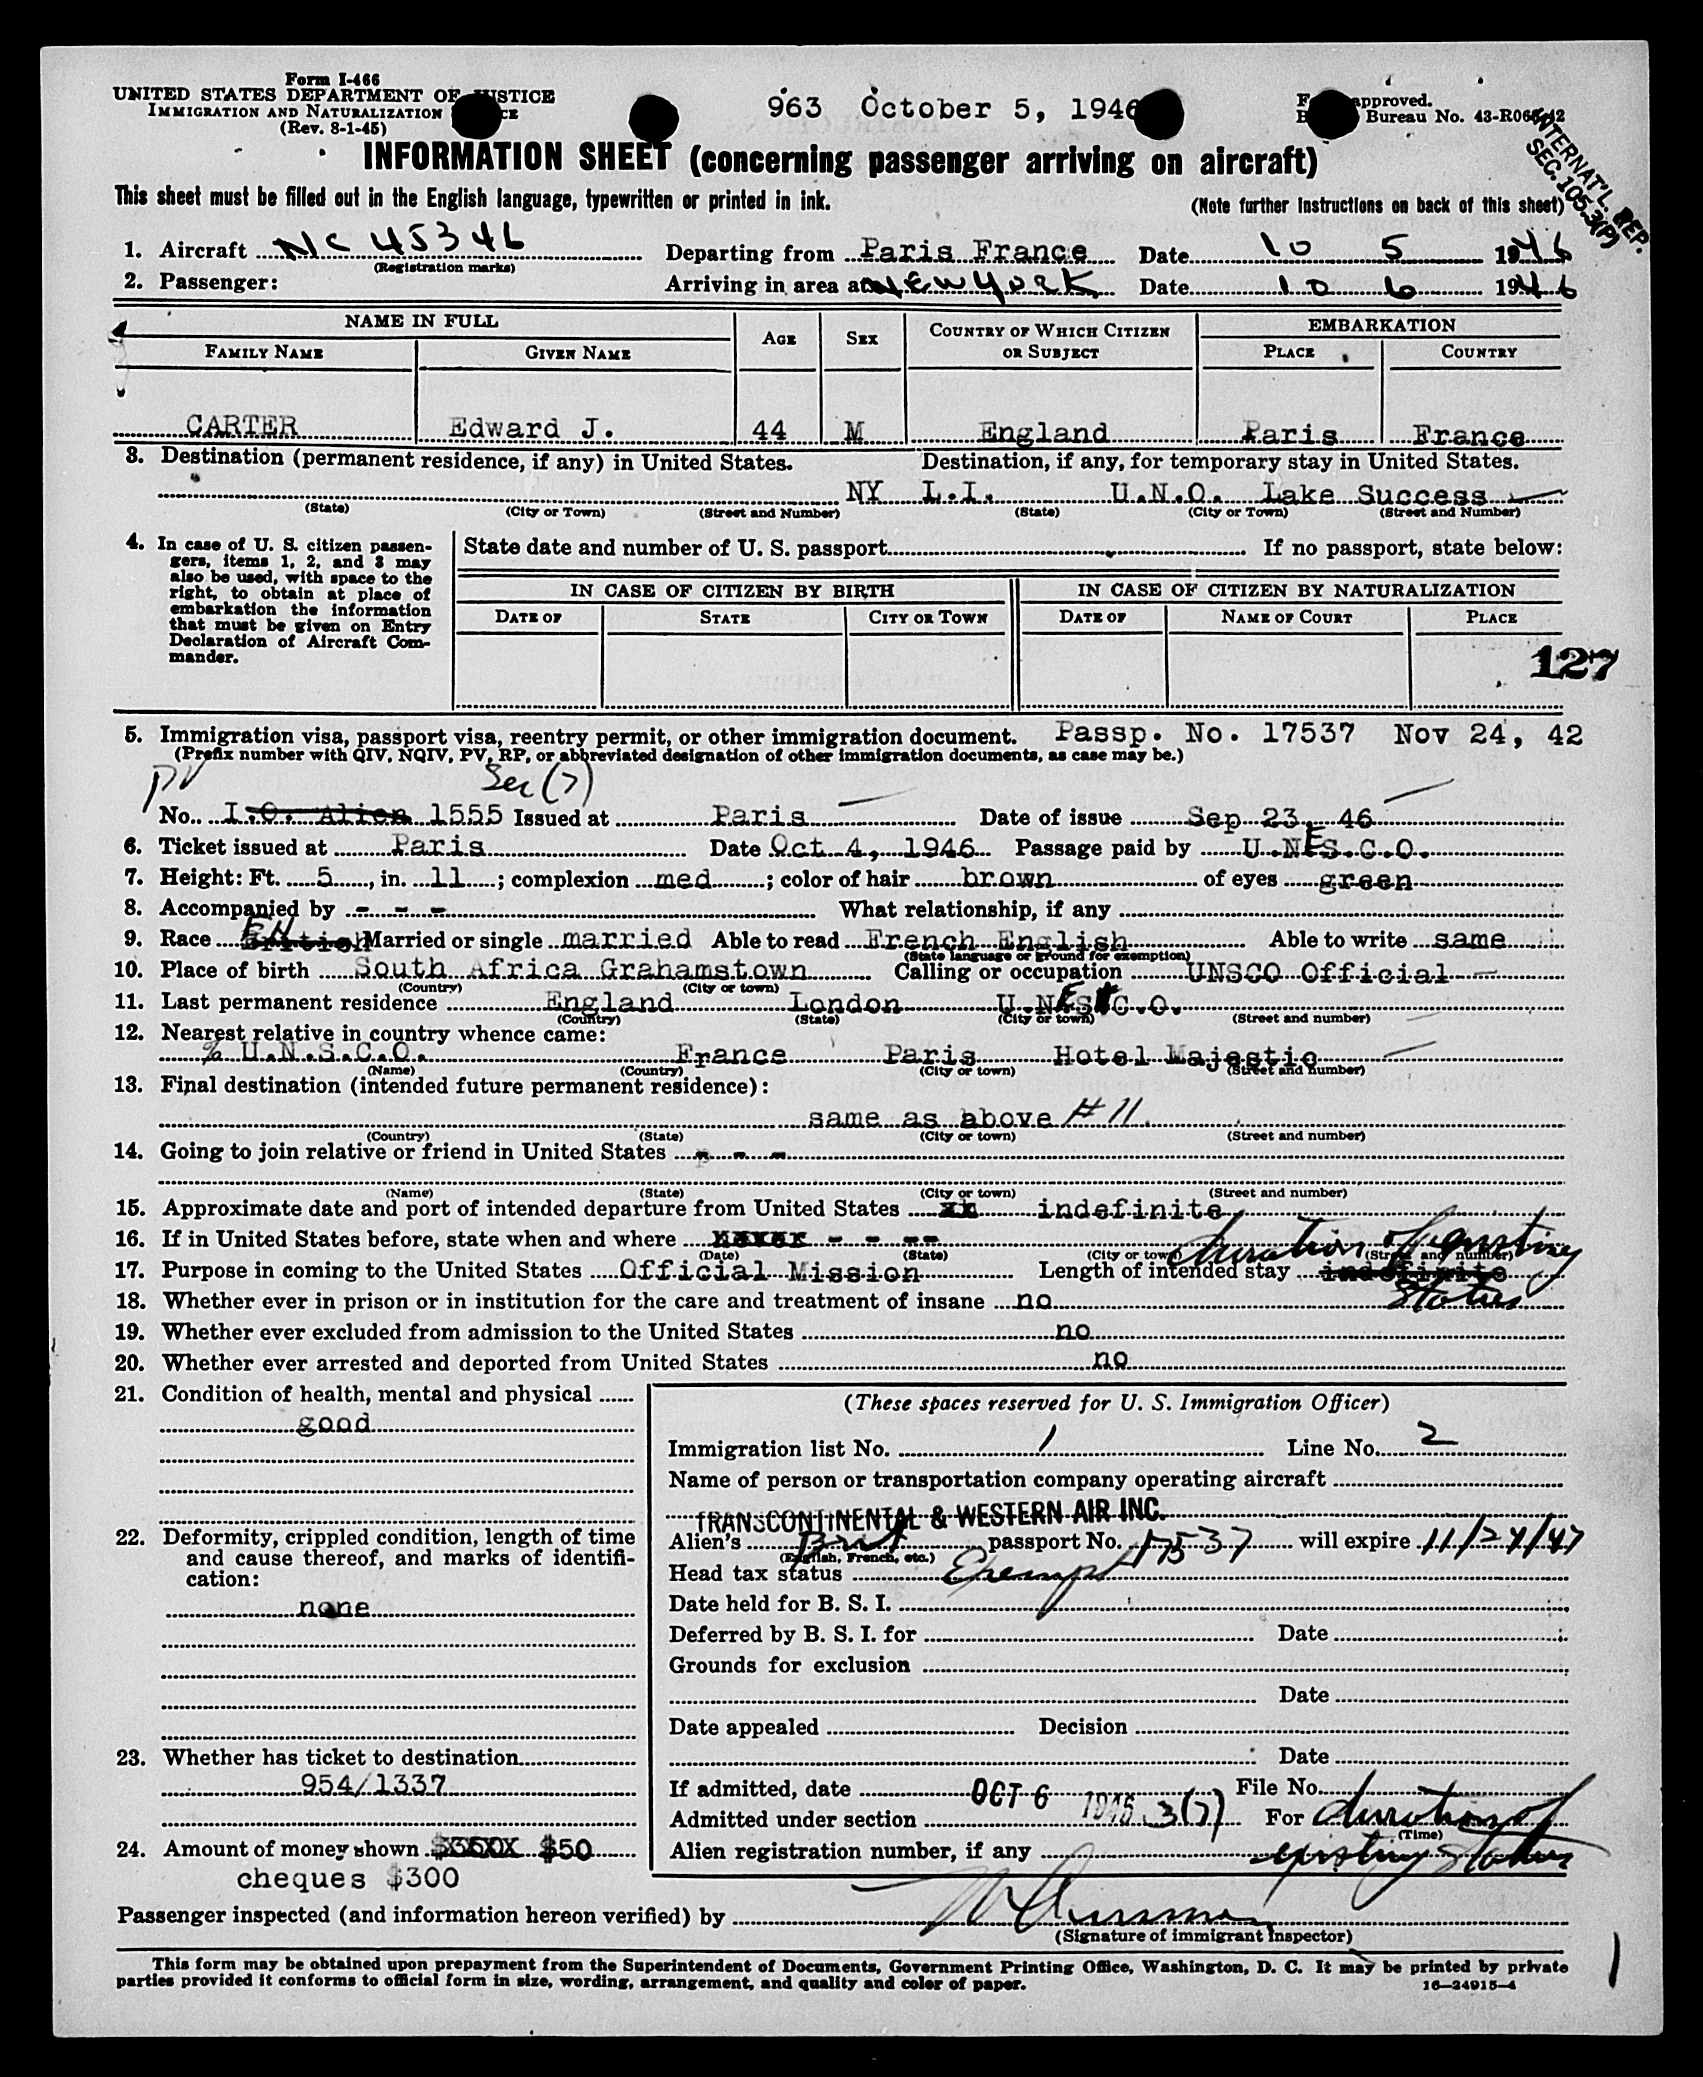 Form I-466
UNITED STATES DEPARTMENT OF JUSTICE
IMMIGRATION AND NATURALIZATION
(Rev. 8-1-45)
963 October 5, 1946
approved.
Bureau No. 43-R065-42
INTERNAT'L. REP.
SEC. 105.3(P)
INFORMATION SHEET (concerning passenger arriving on aircraft)
This sheet must be filled out in the English language, typewritten or printed in ink.
(Note further instructions on back of this sheet)
1. Aircraft NC 45346 Departing from Paris France Date 10 5 1946
(Registration marks)
2. Passenger: Arriving in area at NEW YORK Date 10 6 1946
NAME IN FULL AGE SEX COUNTRY OF WHICH CITIZEN OR SUBJECT EMBARKATION
FAMILY NAME GIVEN NAME PLACE COUNTRY
CARTER Edward J. 44 M England Paris France
3. Destination (permanent residence, if any) in United States. Destination, if any, for temporary stay in United States.
NY L.I. U.N.O. Lake Success
(State) (City or Town) (Street and Number) (State) (City or Town) (Street and Number)
4. In case of U. S. citizen passengers, items 1, 2, and 3 may also be used, with space to the right, to obtain at place of embarkation the information that must be given on Entry Declaration of Aircraft Commander.
State date and number of U. S. passport If no passport, state below:
IN CASE OF CITIZEN BY BIRTH IN CASE OF CITIZEN BY NATURALIZATION
DATE OF STATE CITY OR TOWN DATE OF NAME OF COURT PLACE
127
5. Immigration visa, passport visa, reentry permit, or other immigration document. Passp. No. 17537 Nov 24, 42
(Prefix number with QIV, NQIV, PV, RP, or abbreviated designation of other immigration documents, as case may be.)
PV Sec (7)
No. I.O. Alien 1555 Issued at Paris Date of issue Sep 23, 46
6. Ticket issued at Paris Date Oct 4, 1946 Passage paid by U.N.E.S.C.O.
7. Height: Ft. 5, in. 11; complexion med; color of hair brown of eyes green
8. Accompanied by - - - What relationship, if any
9. Race British EH Married or single married Able to read French English Able to write same
(State language or ground for exemption)
10. Place of birth South Africa Grahamstown Calling or occupation UNSCO Official
(Country) (City or town)
11. Last permanent residence England London U.N.E.S.C.O.
(Country) (State) (City or town) (Street and number)
12. Nearest relative in country whence came:
% U.N.S.C.O. France Paris Hotel Majestic
(Name) (Country) (City or town) (Street and number)
13. Final destination (intended future permanent residence):
same as above # 11
(Country) (State) (City or town) (Street and number)
14. Going to join relative or friend in United States - - -
(Name) (State) (City or town) (Street and number)
15. Approximate date and port of intended departure from United States indefinite
16. If in United States before, state when and where never - - --
(Date) (State) (City or town) (Street and number)
duration of existing status
17. Purpose in coming to the United States Official Mission Length of intended stay indefinite
18. Whether ever in prison or in institution for the care and treatment of insane no
19. Whether ever excluded from admission to the United States no
20. Whether ever arrested and deported from United States no
21. Condition of health, mental and physical
good
22. Deformity, crippled condition, length of time and cause thereof, and marks of identification:
none
23. Whether has ticket to destination
954/1337
24. Amount of money shown $50
cheques $300
(These spaces reserved for U. S. Immigration Officer)
Immigration list No. 1 Line No. 2
Name of person or transportation company operating aircraft
TRANSCONTINENTAL & WESTERN AIR INC.
Alien's Brit passport No. 17537 will expire 11/24/47
(English, French, etc.)
Head tax status Exempt
Date held for B. S. I.
Deferred by B. S. I. for Date
Grounds for exclusion
Date
Date appealed Decision
Date
If admitted, date OCT 6 1946 File No.
Admitted under section 3(7) For duration of
(Time)
Alien registration number, if any existing status
Passenger inspected (and information hereon verified) by
(Signature of immigrant inspector)
This form may be obtained upon prepayment from the Superintendent of Documents, Government Printing Office, Washington, D. C. It may be printed by private
parties provided it conforms to official form in size, wording, arrangement, and quality and color of paper.
16—24915-4